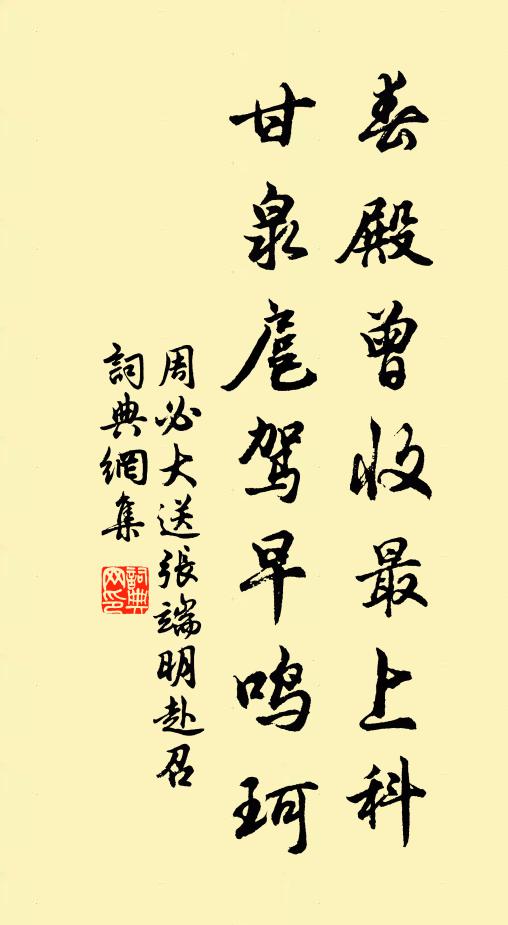 春殿曾收最上科
甘泉扈駕早鳴珂
周必大送張端明赴召
詞典網集
詞典網印